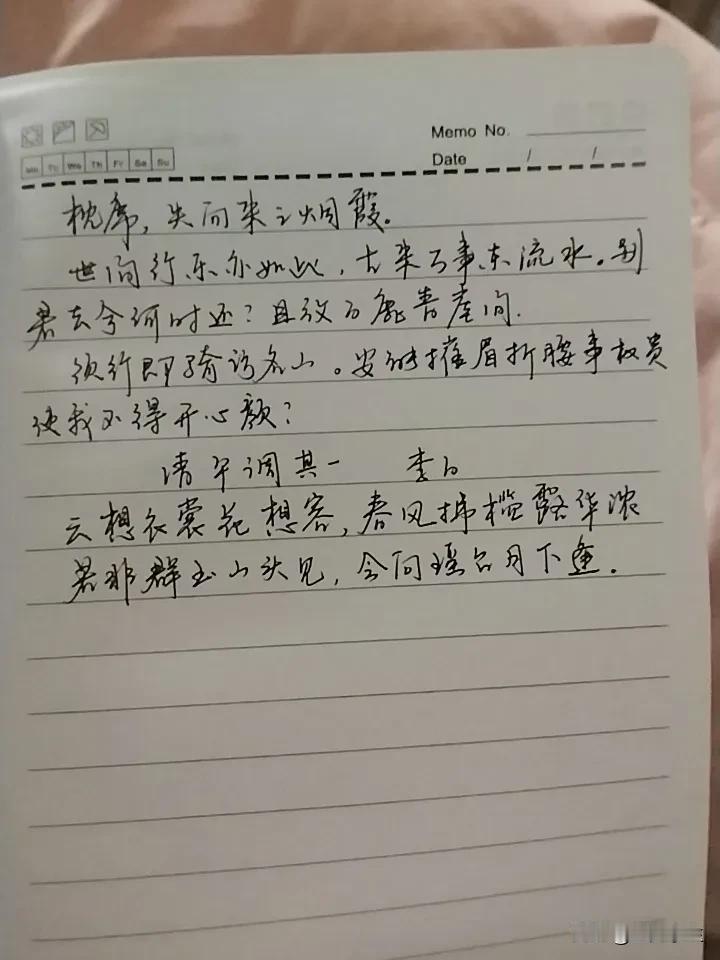 Memo No.
Mo Tu We Th Fr Sa Su
Date / /
枕席，失向来之烟霞。
世间行乐亦如此，古来万事东流水。别
君去兮何时还？且放白鹿青崖间.
须行即骑访名山。安能摧眉折腰事权贵
使我不得开心颜？
清平调其一 李白
云想衣裳花想容，春风拂槛露华浓
若非群玉山头见，会向瑶台月下逢.